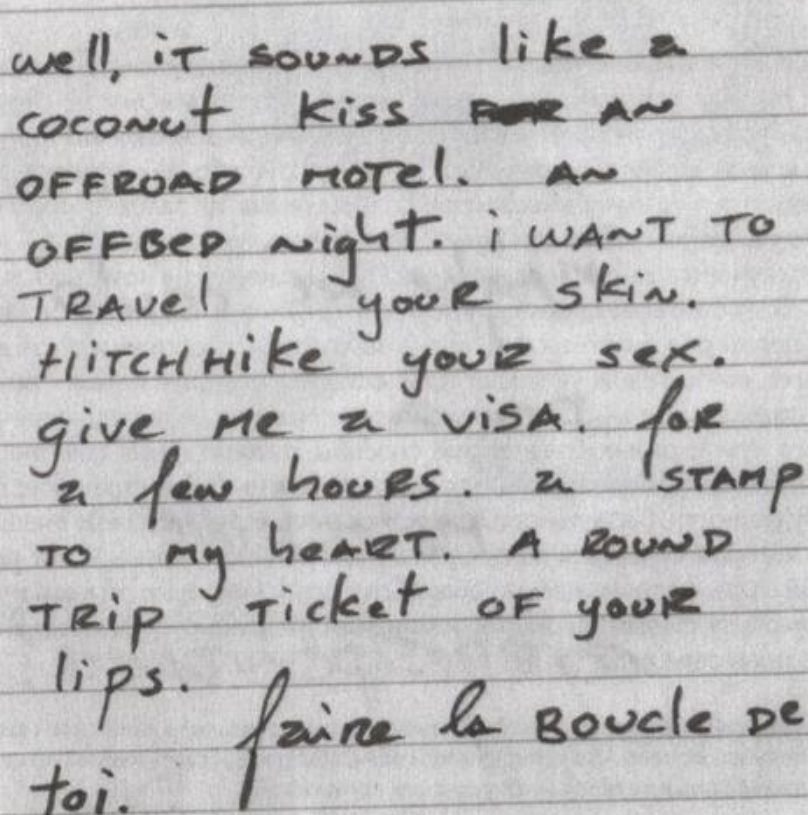 well, iT SOUNDS like a
coconut kiss FOR AN
OFFROAD MOTel. AN
OFFBED night. i WANT TO
TRAVEl youR skin.
HITCHHike youR sex.
give Me a viSA. foR
a few houRS. a STAMP
TO My heART. A ROUND
TRip Ticket OF youR
lips. faire la BOUCle De
toi.